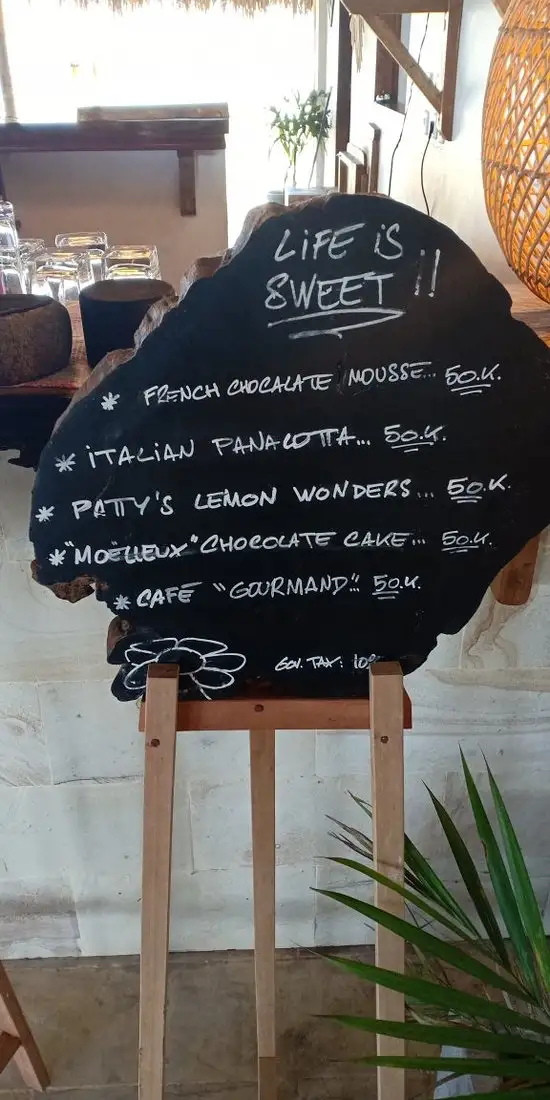 LiFE iS
SWEET !!
* FRENCH CHOCALATE MOUSSE... 50.K.
* iTALiAN PANACOTTA... 50.K.
* PATTY'S LEMON WONDERS... 50.K.
* "MOËLLEUX" CHOCOLATE CAKE... 50.K.
* CAFÉ "GOURMAND".. 50.K.
GOV. TAX: 10%